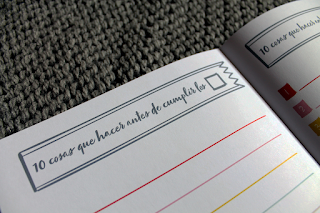 10 cosas que hacer antes de cumplir los
10 cosas que hacer a